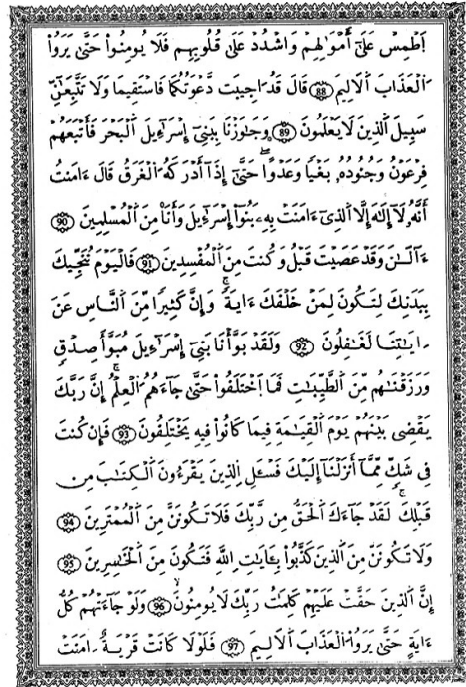 اَطْمِسْ عَلَىٰٓ أَمْوَٰلِهِمْ وَاشْدُدْ عَلَىٰ قُلُوبِهِمْ فَلَا يُومِنُوا۟ حَتَّىٰ يَرَوُا۟
الْعَذَابَ الْأَلِيمَ 88 قَالَ قَدُ اجِيبَت دَّعْوَتُكُمَا فَاسْتَقِيمَا وَلَا تَتَّبِعَـٰٓنِّ
سَبِيلَ الَّذِينَ لَا يَعْلَمُونَ 89 وَجَـٰوَزْنَا بِبَنِىٓ إِسْرَآءِيلَ الْبَحْرَ فَأَتْبَعَهُمْ
فِرْعَوْنُ وَجُنُودُهُۥ بَغْيًا وَعَدْوًا حَتَّىٰٓ إِذَآ أَدْرَكَهُ الْغَرَقُ قَالَ ءَامَنتُ
أَنَّهُۥ لَآ إِلَـٰهَ إِلَّا الَّذِىٓ ءَامَنَتْ بِهِۦ بَنُوٓا۟ إِسْرَآءِيلَ وَأَنَا۠ مِنَ الْمُسْلِمِينَ 90
ءَآلَـٰنَ وَقَدْ عَصَيْتَ قَبْلُ وَكُنتَ مِنَ الْمُفْسِدِينَ 91 فَالْيَوْمَ نُنَجِّيكَ
بِبَدَنِكَ لِتَكُونَ لِمَنْ خَلْفَكَ ءَايَةً وَإِنَّ كَثِيرًا مِّنَ النَّاسِ عَنَ
ـايَـٰتِنَا لَغَـٰفِلُونَ 92 وَلَقَدْ بَوَّأْنَا بَنِىٓ إِسْرَآءِيلَ مُبَوَّأَ صِدْقٍ
وَرَزَقْنَـٰهُم مِّنَ الطَّيِّبَـٰتِ فَمَا اخْتَلَفُوا۟ حَتَّىٰ جَآءَهُمُ الْعِلْمُ إِنَّ رَبَّكَ
يَقْضِى بَيْنَهُمْ يَوْمَ الْقِيَـٰمَةِ فِيمَا كَانُوا۟ فِيهِ يَخْتَلِفُونَ 93 فَإِن كُنتَ
فِى شَكٍّ مِّمَّآ أَنزَلْنَآ إِلَيْكَ فَسْـَٔلِ الَّذِينَ يَقْرَءُونَ الْكِتَـٰبَ مِن
قَبْلِكَ لَقَدْ جَآءَكَ الْحَقُّ مِن رَّبِّكَ فَلَا تَكُونَنَّ مِنَ الْمُمْتَرِينَ 94
وَلَا تَكُونَنَّ مِنَ الَّذِينَ كَذَّبُوا۟ بِـَٔايَـٰتِ اللَّهِ فَتَكُونَ مِنَ الْخَـٰسِرِينَ 95
إِنَّ الَّذِينَ حَقَّتْ عَلَيْهِمْ كَلِمَـٰتُ رَبِّكَ لَا يُومِنُونَ 96 وَلَوْ جَآءَتْهُمْ كُلُّ
ءَايَةٍ حَتَّىٰ يَرَوُا۟ الْعَذَابَ الْأَلِيمَ 97 فَلَوْلَا كَانَتْ قَرْيَةٌ ـامَنَتْ